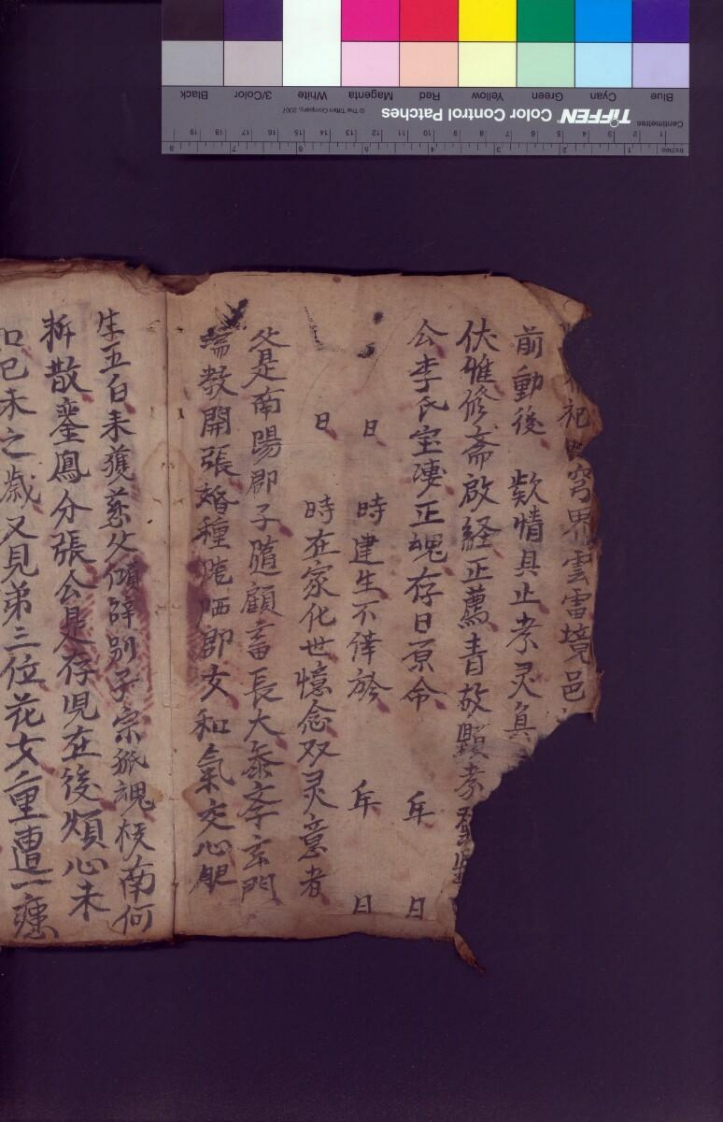 祀 穹界雲雷境邑
前動後 欵情具止孝灵真
伏惟修斋啟経正薦青故顯孝
公李氏室凄正魂存日原命 年 日
日 時建生不倖於 年 日
日 時在家化世憶念双灵意者
父是南陽郡子隨顧畜長大叅孝玄門
教開張婚種晒郎女和氣交心肥
生五百未獲慈父傾辞别子宗孤魂 南何
拆散鸞鳳分張公是存児在後煩心未
口巳未之歳又見弟三位花女重遭一
Blue Cyan Green Yellow Red Magenta White 3/Color Black
Centimetres TIFFEN Color Control Patches © The Tiffen Company, 2007
1 2 3 4 5 6 7 8 9 10 11 12 13 14 15 16 17 18 19
Inches 1 2 3 4 5 6 7 8